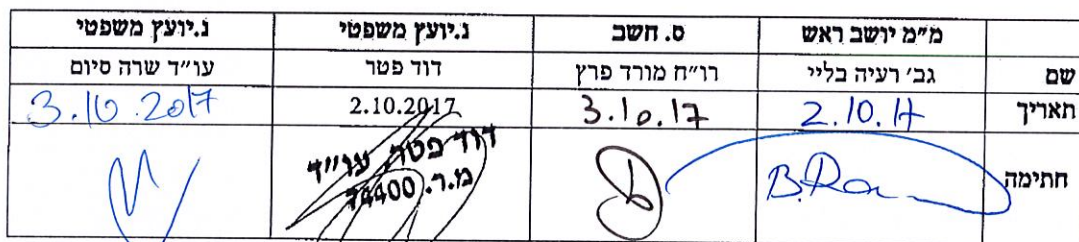 מ״מ יושב ראש ס. חשב נ.יועץ משפטי נ.יועץ משפטי
שם גב׳ רעיה בליי רו״ח מורד פרץ דוד פטר עו״ד שרה סיום
תאריך 2.10.17 3.10.17 2.10.2017 3.10.2017
חתימה B.Ra
דוד פטר, עו״ד
מ.ר. 74400